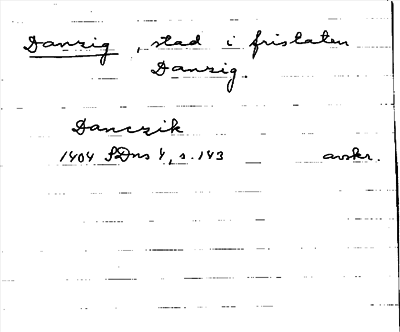 Danzig, stad i fristaten
Danzig.
Danczik
1404 SDns 1, s. 143 avskr.